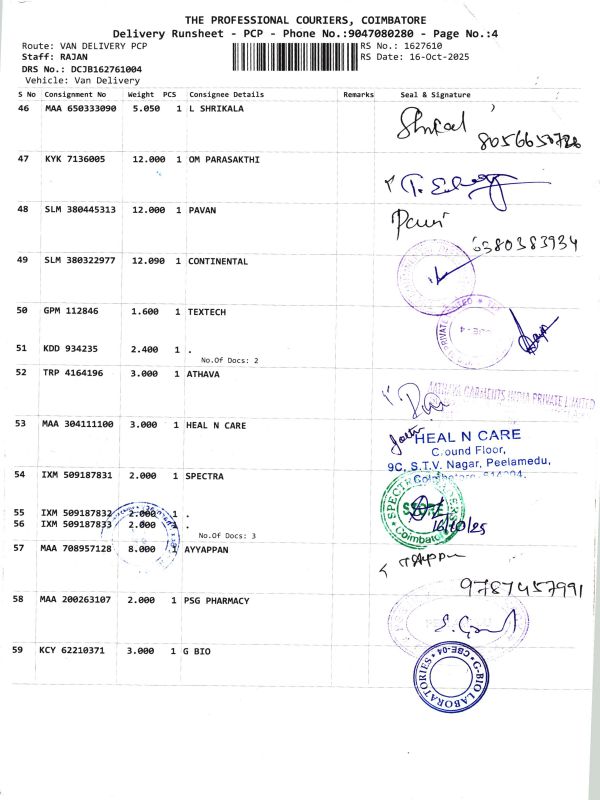 THE PROFESSIONAL COURIERS, COIMBATORE
Delivery Runsheet - PCP - Phone No.:9047080280 - Page No.:4
Route: VAN DELIVERY PCP RS No.: 1627610
Staff: RAJAN RS Date: 16-Oct-2025
DRS No.: DCJB162761004
Vehicle: Van Delivery
S No Consignment No Weight PCS Consignee Details Remarks Seal & Signature
46 MAA 650333090 5.050 1 L SHRIKALA
47 KYK 7136005 12.000 1 OM PARASAKTHI
48 SLM 380445313 12.000 1 PAVAN
6380383934
49 SLM 380322977 12.090 1 CONTINENTAL
50 GPM 112846 1.600 1 TEXTECH
51 KDD 934235 2.400 1 .
No.Of Docs: 2
52 TRP 4164196 3.000 1 ATHAVA
GARMENTS INDIA PRIVATE LIMITED
53 MAA 304111100 3.000 1 HEAL N CARE
HEAL N CARE
Ground Floor,
9C, S.T.V. Nagar, Peelamedu,
54 IXM 509187831 2.000 1 SPECTRA
55 IXM 509187832 2.000 1 .
56 IXM 509187833 2.000 1 .
16/10/25
No.Of Docs: 3
57 MAA 708957128 8.000 1 AYYAPPAN
9787457991
58 MAA 200263107 2.000 1 PSG PHARMACY
59 KCY 62210371 3.000 1 G BIO
G-BIO LABORATORIES
CBE-04